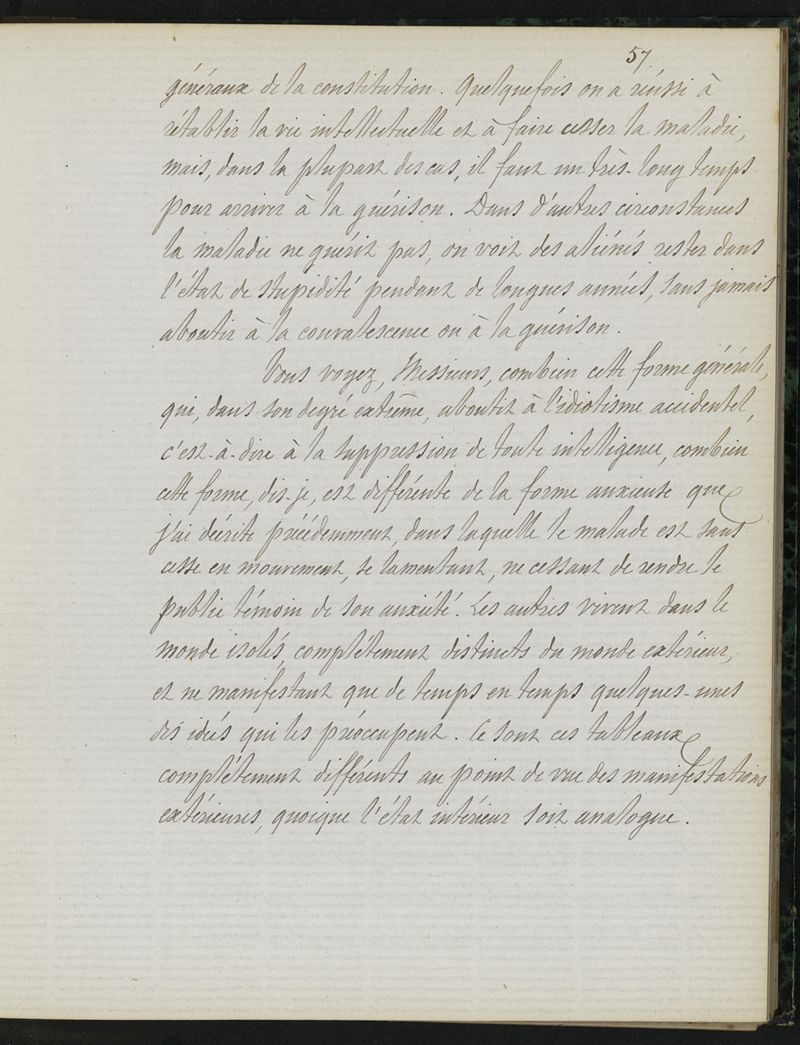 57.
généraux de la constitution. Quelquefois on a réussi à
rétablir la vie intellectuelle et à faire cesser la maladie,
mais, dans la plupart des cas, il faut un très-long temps
pour arriver à la guérison. Dans d'autres circonstances
la maladie ne guérit pas, on voit des aliénés rester dans
l'état de stupidité pendant de longues années, sans jamais
aboutir à la convalescence ou à la guérison.
Vous voyez, Messieurs, combien cette forme générale,
qui, dans son degré extrême, aboutit à l'idiotisme accidentel,
c'est-à-dire à la suppression de toute intelligence, combien
cette forme, dis-je, est différente de la forme anxieuse que
j'ai décrite précédemment, dans laquelle le malade est sans
cesse en mouvement, se lamentant, ne cessant de rendre le
public témoin de son anxiété. Les autres vivent dans le
monde isolés, complètement distincts du monde extérieur,
et ne manifestant que de temps en temps quelques-unes
des idées qui les préoccupent. Ce sont ces tableaux
complètement différents au point de vue des manifestations
extérieures, quoique l'état intérieur soit analogue.